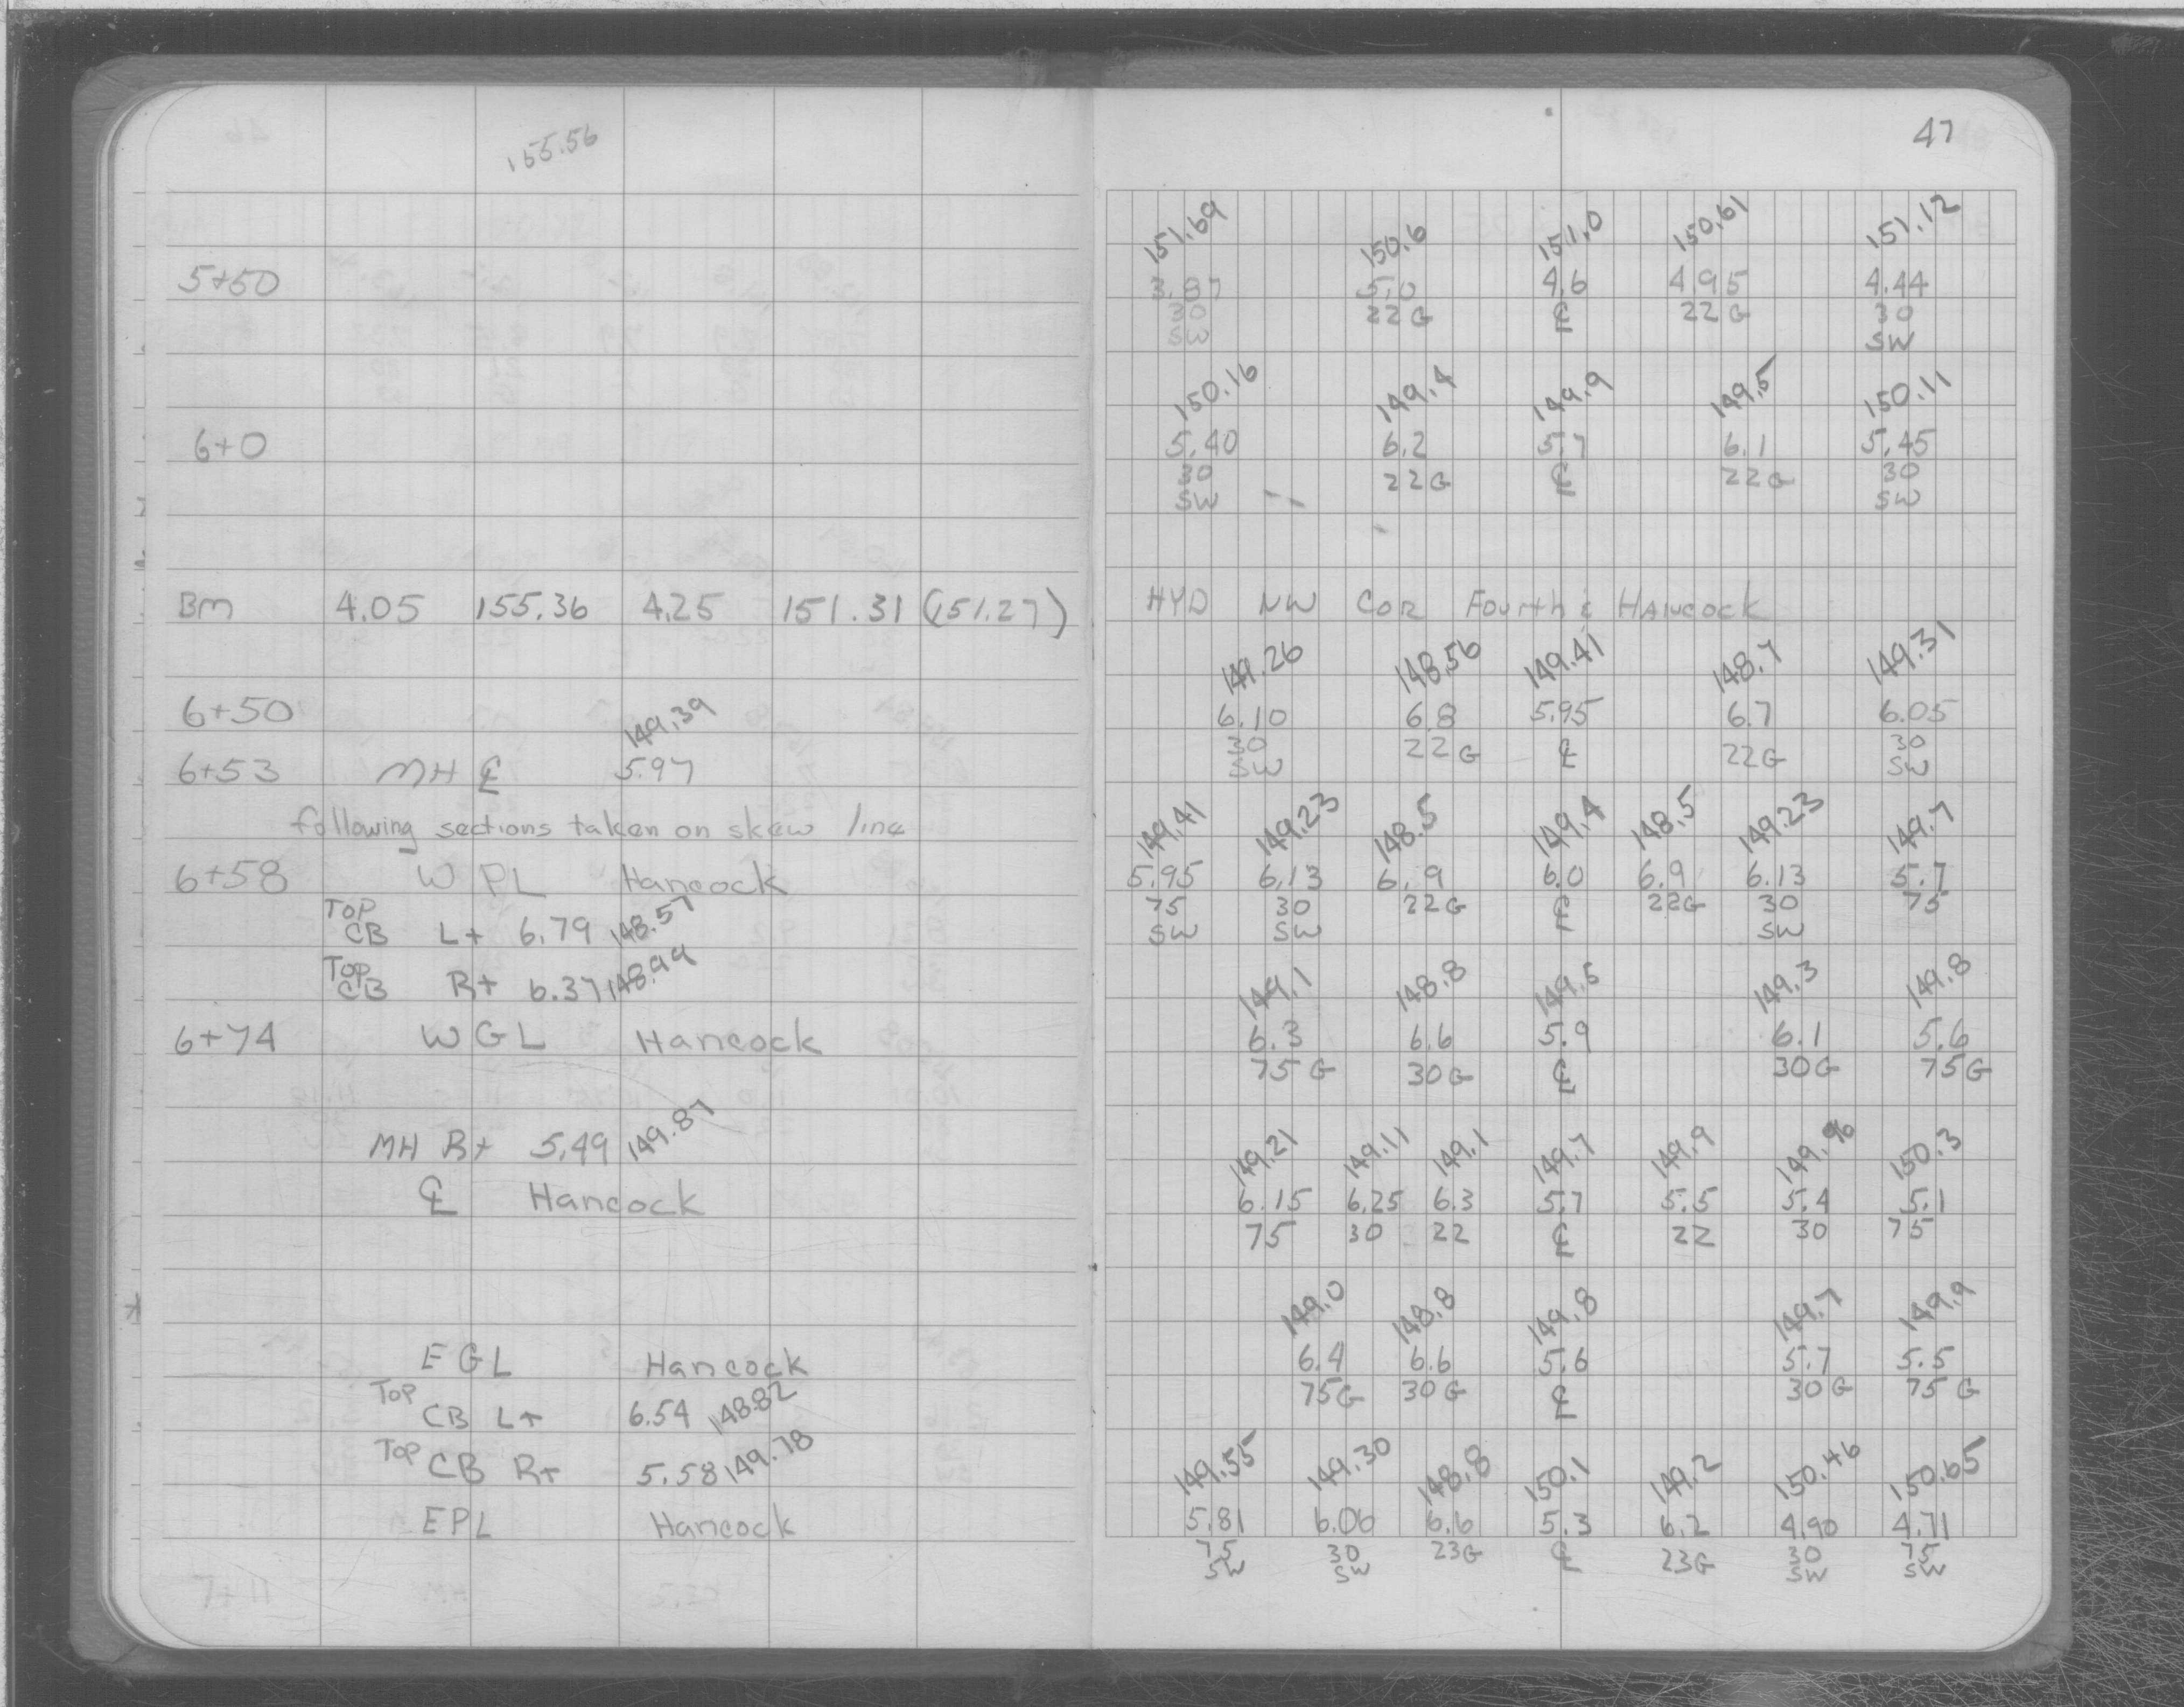 155.56
47
151.69 150.6 151.0 150.61 151.12
5+50 3.87 5.0 4.6 4.95 4.44
30 22G ℄ 22G 30
SW SW
150.16 149.4 149.9 149.5 150.11
6+0 5.40 6.2 5.7 6.1 5.45
30 22G ℄ 22G 30
SW SW
BM 4.05 155.36 4.25 151.31 (151.27) HYD NW COR Fourth & Hancock
149.26 148.56 149.41 148.7 149.31
6+50 6.10 6.8 5.95 6.7 6.05
149.39 30 22G ℄ 22G 30
6+53 MH ℄ 5.97 SW SW
following sections taken on skew line
149.41 149.23 148.5 149.4 148.5 149.23 149.7
6+58 W PL Hancock 5.95 6.13 6.9 6.0 6.9 6.13 5.7
75 30 22G ℄ 22G 30 75
Top CB Lt 6.79 148.57 SW SW SW
Top CB Rt 6.37 148.99
149.1 148.8 149.5 149.3 149.8
6+74 W GL Hancock 6.3 6.6 5.9 6.1 5.6
75G 30G ℄ 30G 75G
MH Rt 5.49 149.87
149.21 149.11 149.1 149.7 149.9 149.96 150.3
℄ Hancock 6.15 6.25 6.3 5.7 5.5 5.4 5.1
75 30 22 ℄ 22 30 75
149.0 148.8 149.8 149.7 149.9
E GL Hancock 6.4 6.6 5.6 5.7 5.5
75G 30G ℄ 30G 75G
Top CB Lt 6.54 148.82
Top CB Rt 5.58 149.78
149.55 149.30 148.8 150.1 149.2 150.46 150.65
EPL Hancock 5.81 6.06 6.6 5.3 6.2 4.90 4.71
75 30 23G ℄ 23G 30 75
SW SW SW SW